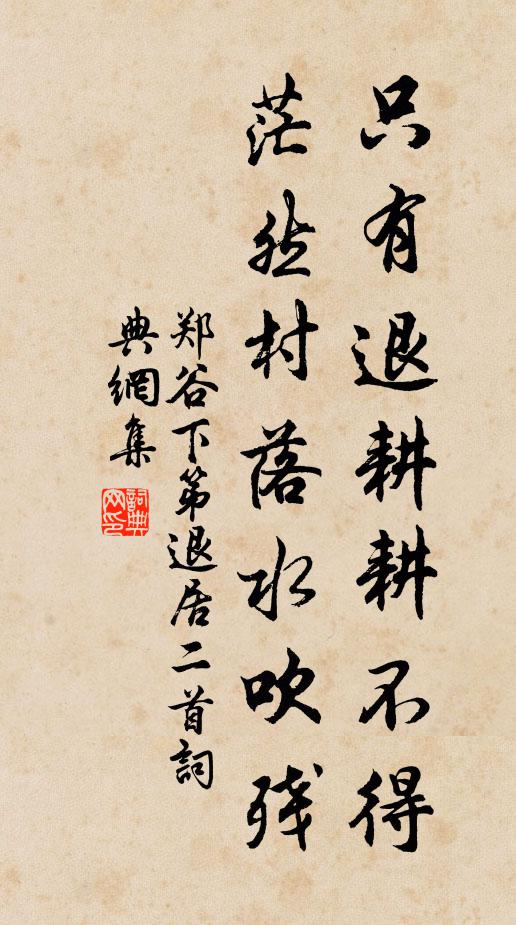 只有退耕耕不得
茫然村落水吹残
郑谷下第退居二首詞
典網集
詞典网印